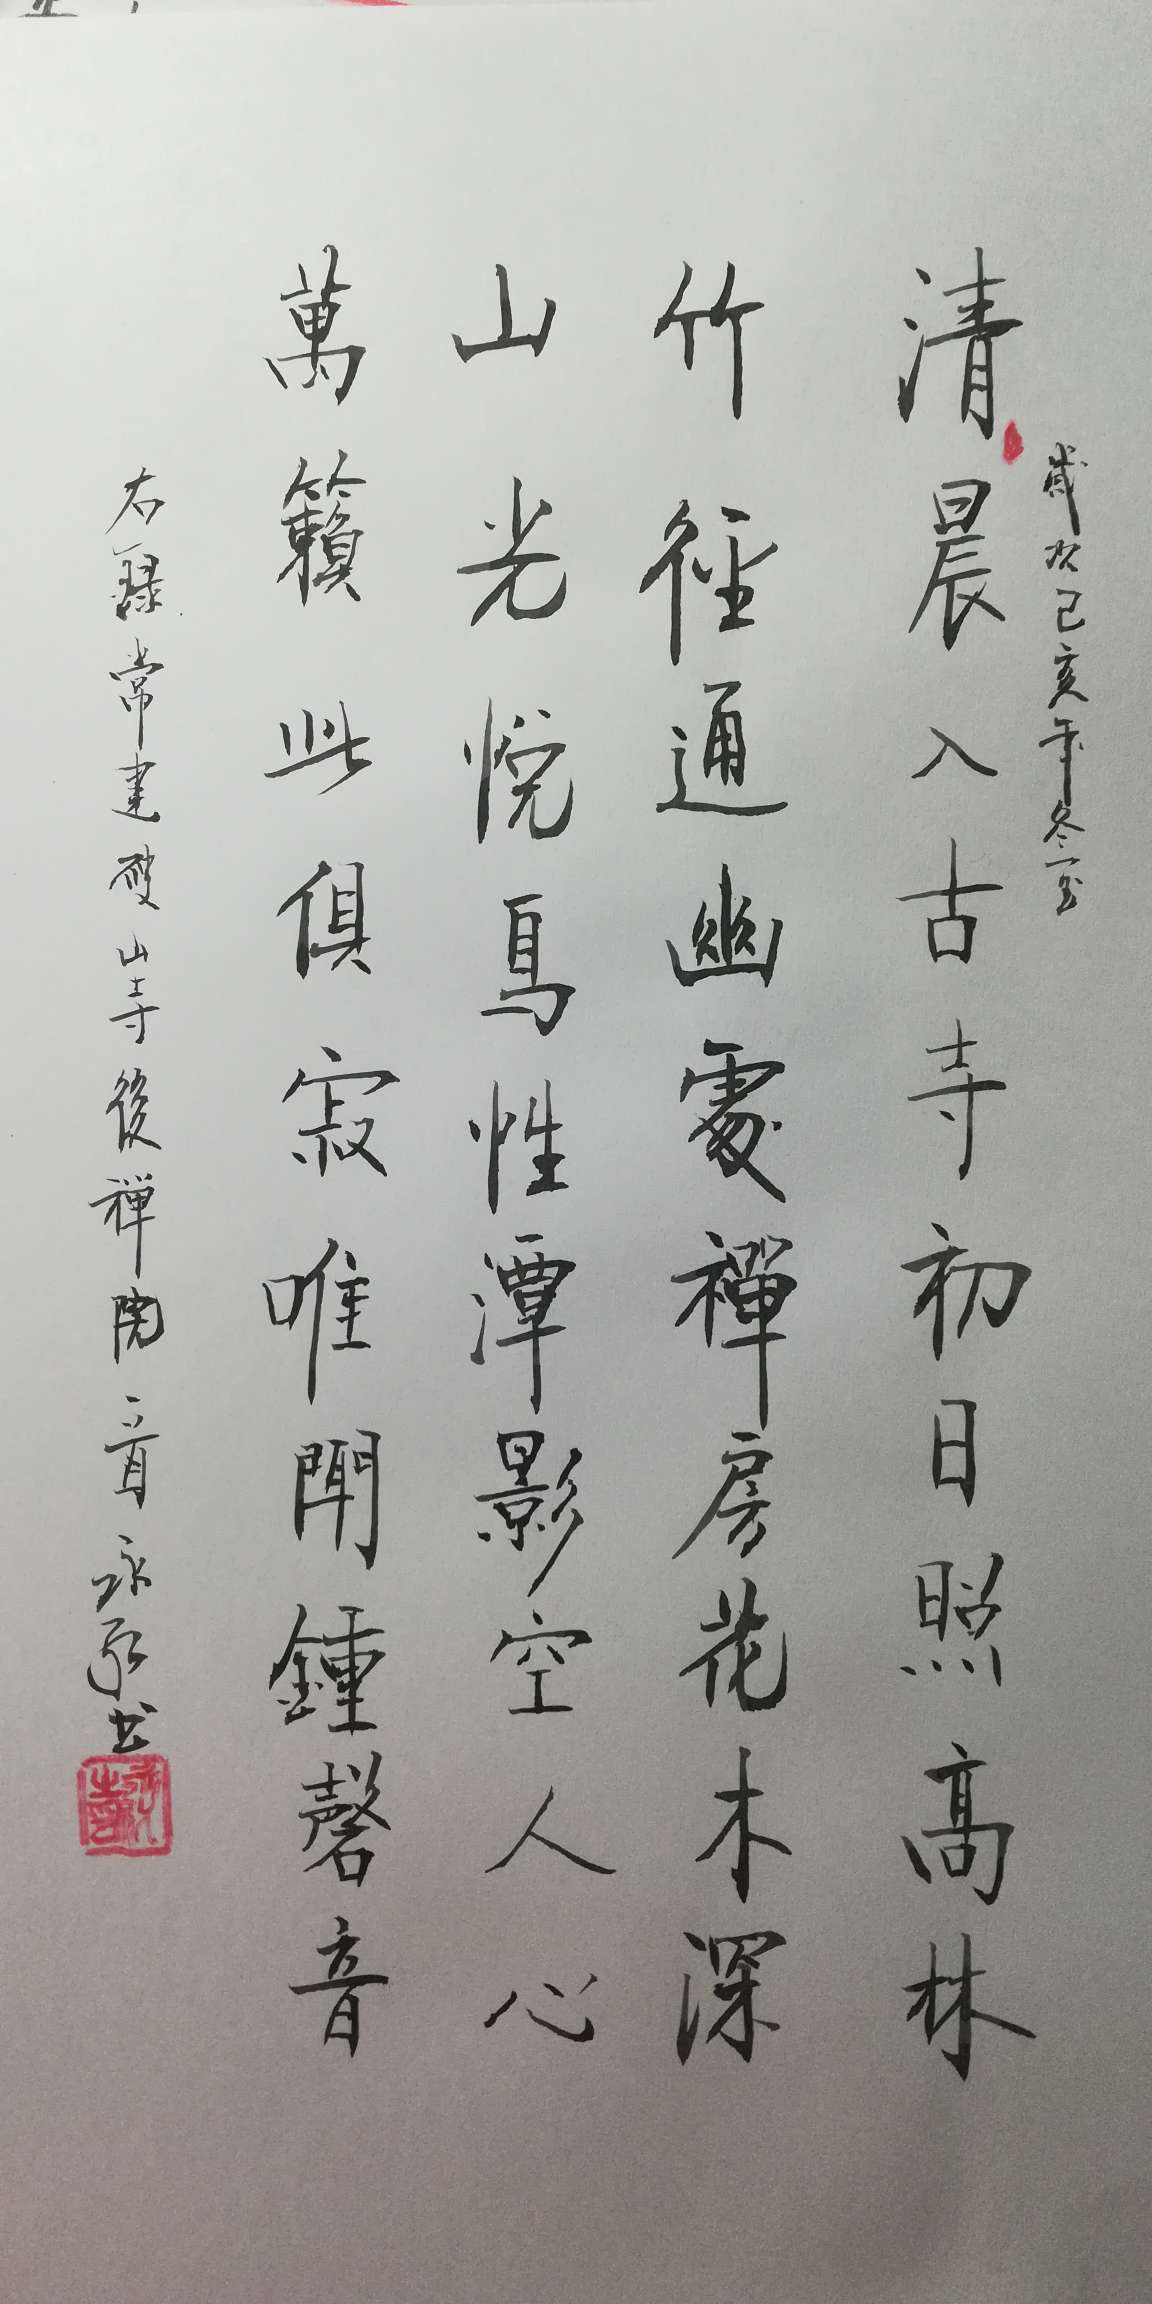 歲次己亥年冬至
清晨入古寺初日照高林
竹徑通幽處禪房花木深
山光悅鳥性潭影空人心
萬籟此俱寂唯聞鍾磬音
右錄常建破山寺後禪院一首永承书